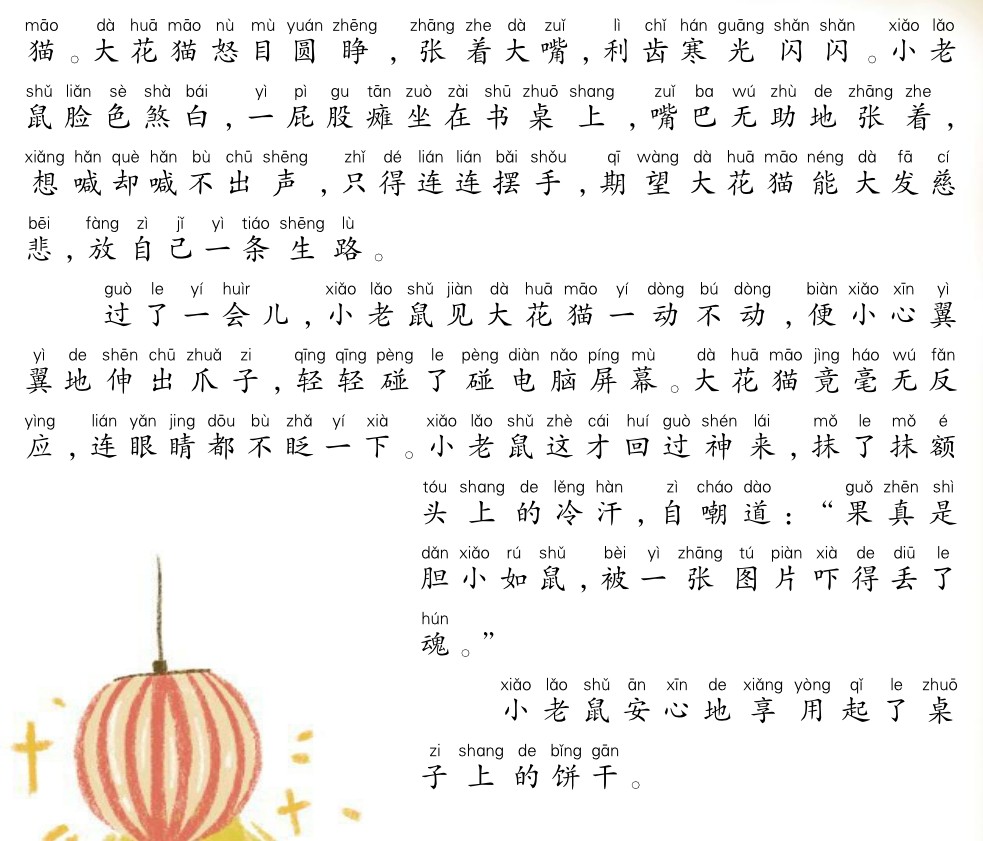 māo dà huā māo nù mù yuán zhēng zhāng zhe dà zuǐ lì chǐ hán guāng shǎn shǎn xiǎo lǎo
猫。大花猫怒目圆睁，张着大嘴，利齿寒光闪闪。小老
shǔ liǎn sè shà bái yì pì gu tān zuò zài shū zhuō shang zuǐ ba wú zhù de zhāng zhe
鼠脸色煞白，一屁股瘫坐在书桌上，嘴巴无助地张着，
xiǎng hǎn què hǎn bù chū shēng zhǐ dé lián lián bǎi shǒu qī wàng dà huā māo néng dà fā cí
想喊却喊不出声，只得连连摆手，期望大花猫能大发慈
bēi fàng zì jǐ yì tiáo shēng lù
悲，放自己一条生路。
guò le yí huìr xiǎo lǎo shǔ jiàn dà huā māo yí dòng bú dòng biàn xiǎo xīn yì
过了一会儿，小老鼠见大花猫一动不动，便小心翼
yì de shēn chū zhuǎ zi qīng qīng pèng le pèng diàn nǎo píng mù dà huā māo jìng háo wú fǎn
翼地伸出爪子，轻轻碰了碰电脑屏幕。大花猫竟毫无反
yìng lián yǎn jing dōu bù zhǎ yí xià xiǎo lǎo shǔ zhè cái huí guò shén lái mǒ le mǒ é
应，连眼睛都不眨一下。小老鼠这才回过神来，抹了抹额
tóu shang de lěng hàn zì cháo dào guǒ zhēn shì
头上的冷汗，自嘲道：“果真是
dǎn xiǎo rú shǔ bèi yì zhāng tú piàn xià de diū le
胆小如鼠，被一张图片吓得丢了
hún
魂。”
xiǎo lǎo shǔ ān xīn de xiǎng yòng qǐ le zhuō
小老鼠安心地享用起了桌
zi shang de bǐng gān
子上的饼干。